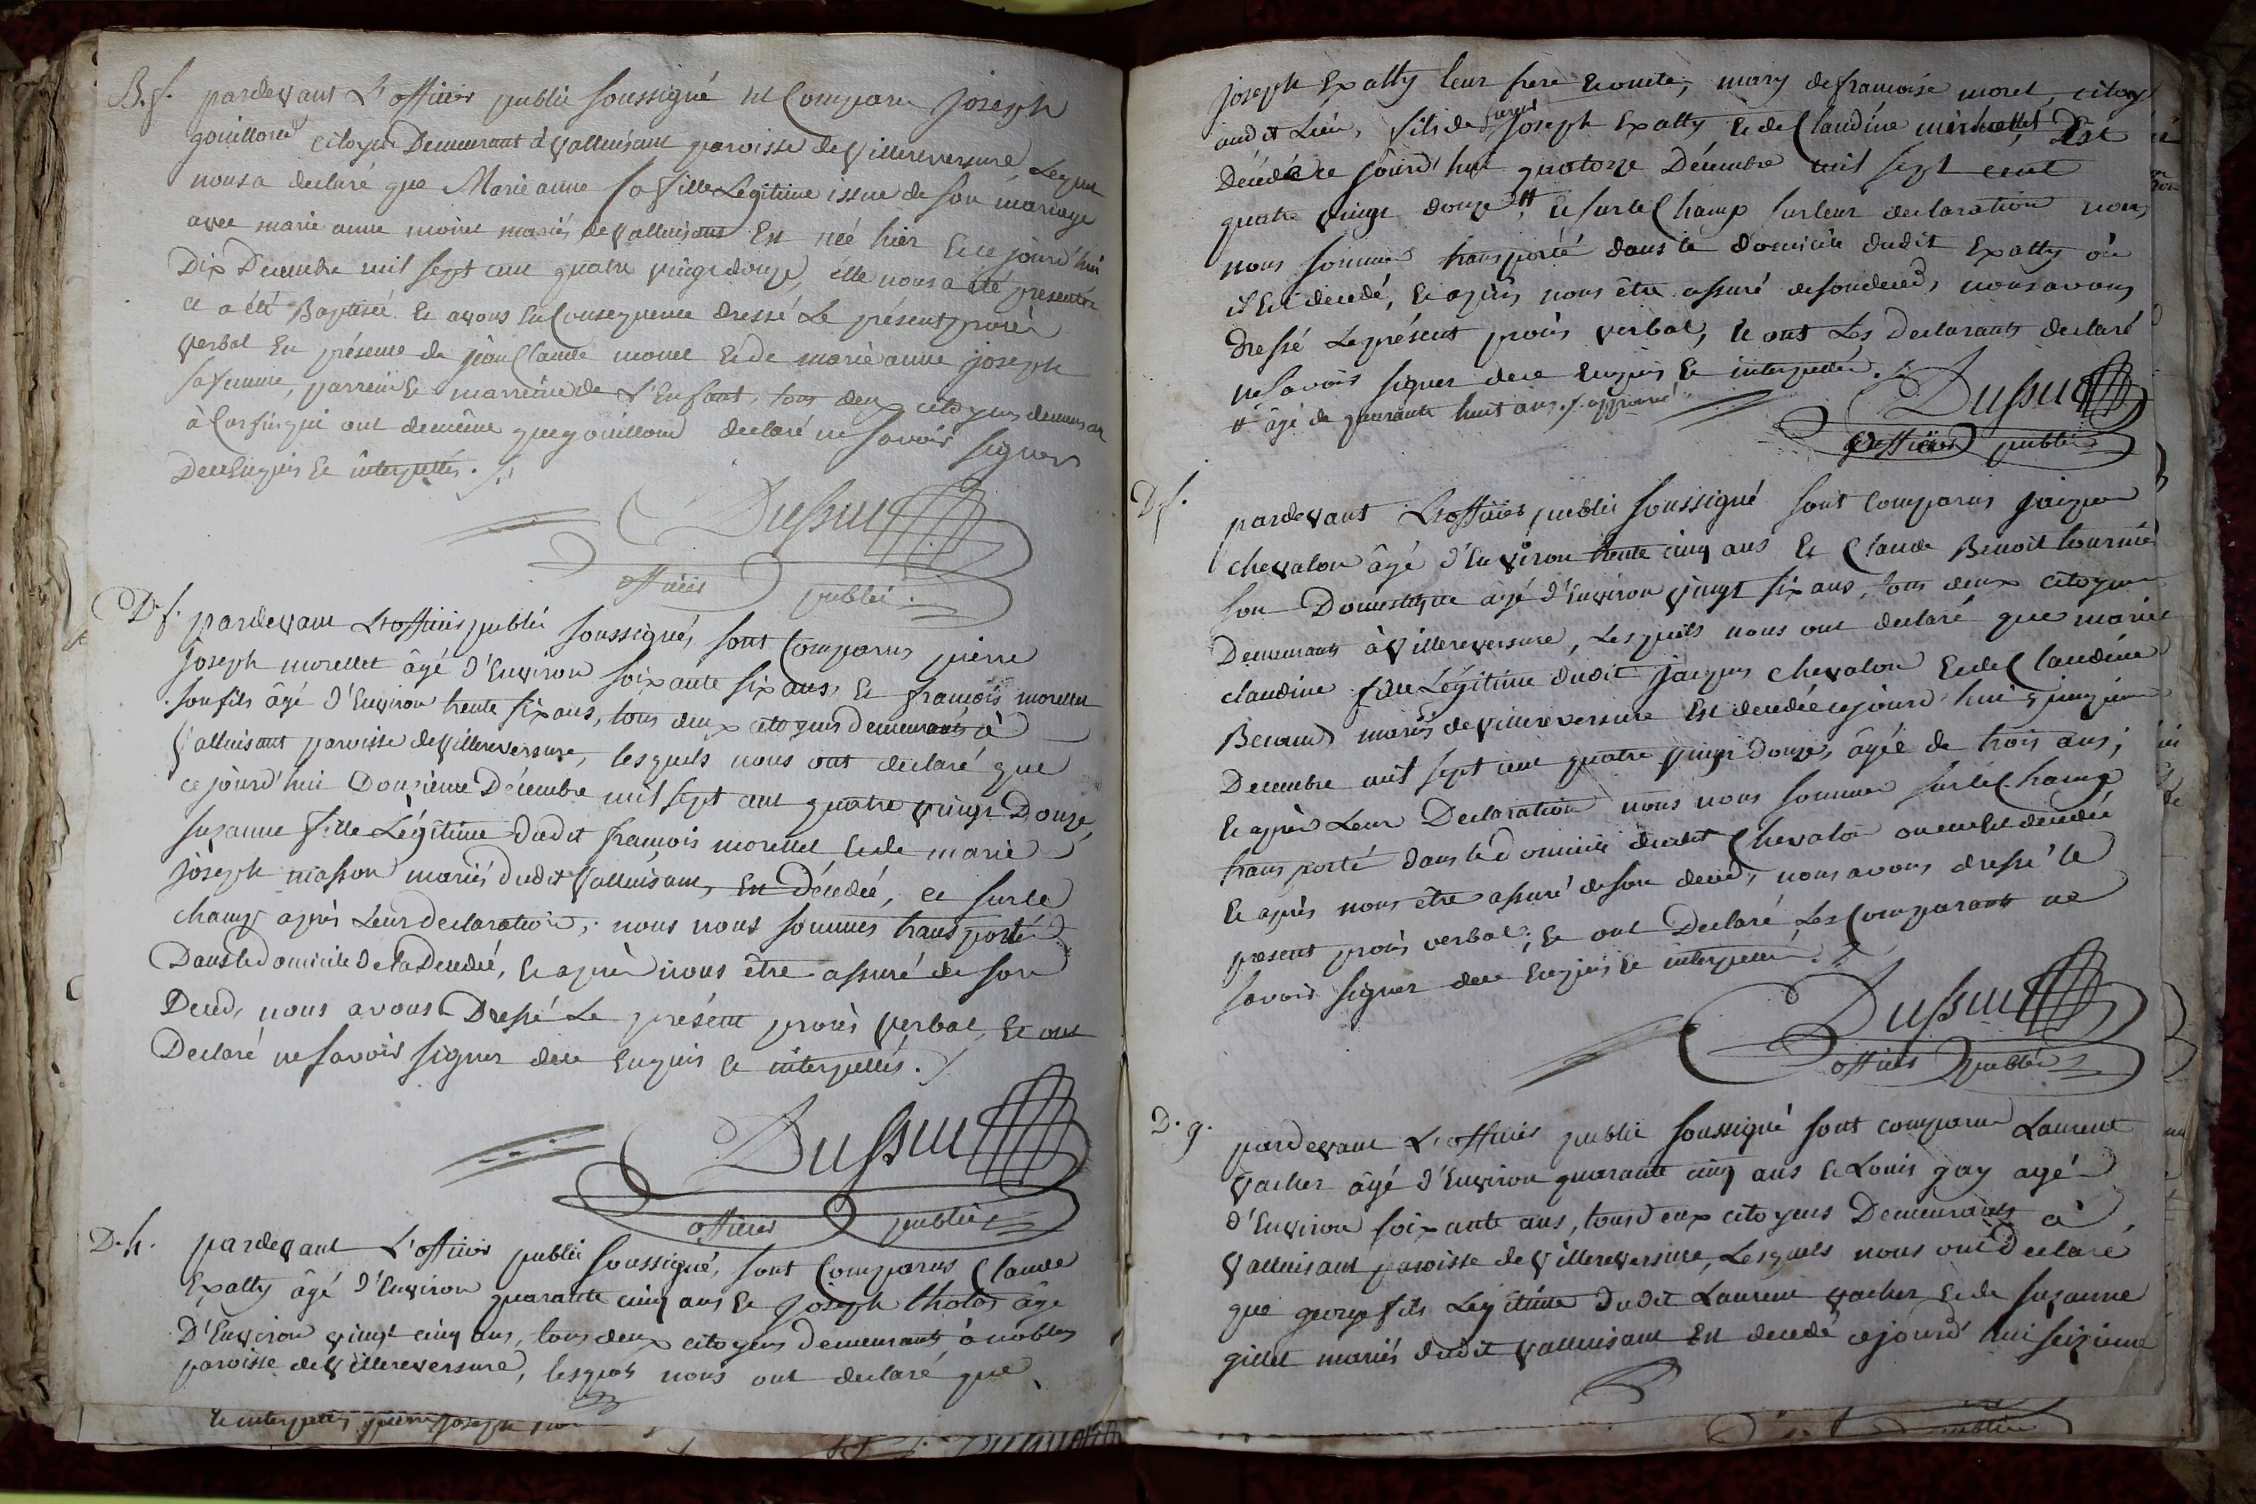 B. f. pardevant L'officier public soussigné est Comparu Joseph
gouilloud citoyen Demeurant à valluisant paroisse de villereversure Lequel
nous a declaré que Marie anne sa fille Legitime issue de son mariage
avec marie anne monet mariés de valluisant Est née hier Et ce jourd'hui
Dix Decembre mil sept cent quatre vingt douze, elle nous a été presentée
et a été Baptisée. Et avons En Consequence dressé Le présent procès
verbal En présence de jean Claude monet Et de marie anne joseph
sa femme, parrein Et marreine de L'Enfant, tous deux citoyens demeurant
à qui ont de même que gouilloud declaré ne savoir signer
De ce Enquis Et interpellés ./.
Dussuc
officier public
D. f. pardevant L'officier public soussigné, sont Comparus pierre
Joseph morellet âgé d'Environ soixante six ans, Et françois morellet
son fils âgé d'Environ trente six ans, tous deux citoyens demeurants à
valluisant paroisse de villereversure, lesquels nous ont declaré que
ce jourd'hui Douzieme Décembre mil sept cent quatre vingt Douze,
suzanne fille Légitime dudit françois morellet Et de marie
Joseph masson mariés dudit valluisant, Est Décedée, et sur le
champ après Leur declaration, nous nous sommes transporté
Dans le domicile De la Decedée, Et après nous être assuré de son
Decès, nous avons Dressé Le présent procès verbal, Et ont
Declaré ne savoir signer de ce Enquis Et interpellés ./.
Dussuc
officier public
D. h. pardevant L'officier public soussigné, sont Comparus Claude
Expatty âgé d'Environ quarante cinq ans Et Joseph tholas âgé
D'Environ vingt cinq ans, tous deux citoyens demeurants à nobles
paroisse de villereversure, lesquels nous ont declaré que
Et interpellés pierre Joseph
Joseph Expatty leur frere Et oncle, mary de françoise morel, citoyen
audit Lieu, fils de Joseph Expatty Et de Claudine Est
Décedé ce jourd'hui quatorze Décembre mil sept cent
quatre vingt douze # Et sur le Champ sur leur declaration nous
nous sommes transporté dans le domicile dudit Expatty où
il Est decedé, Et après nous être assuré de son decès, nous avons
dressé Le présent procès verbal, Et ont Les declarants declaré
ne savoir signer de ce Enquis Et interpellés ./.
# âgé de quarante huit ans ./. approuvé
Dussuc
officier public
D. f. pardevant L'officier public soussigné sont Comparus jacques
chevalon âgé d'Environ trente cinq ans Et Claude Benoit tournier
son Domestique âgé d'Environ vingt six ans, tous deux citoyens
Demeurants à villereversure, Lesquels nous ont declaré que marie
claudine fille Légitime dudit jacques chevalon Et de Claudine
Benaud mariés de villereversure Est decedée ce jourd'hui quinzieme
Decembre mil sept cent quatre vingt douze, âgée de trois ans ;
Et après Leur Declaration nous nous sommes sur le Champ
transporté dans le domicile dudit Chevalon où elle Est decedée
Et après nous être assuré de son decès, nous avons dressé le
present procès verbal, Et ont Declaré Les Comparants ne
savoir signer de ce Enquis Et interpellés ./.
Dussuc
officier public
D. g. pardevant L'officier public soussigné sont comparus Laurent
vacher âgé d'Environ quarante cinq ans Et Louis gay agé
d'Environ soixante ans, tous deux citoyens Demeurants à
valluisant paroisse de villereversure, Lesquels nous ont Declaré
que george fils Legitime dudit Laurent vacher Et de suzanne
gillet mariés dudit valluisant Est decedé ce jourd'hui seizieme